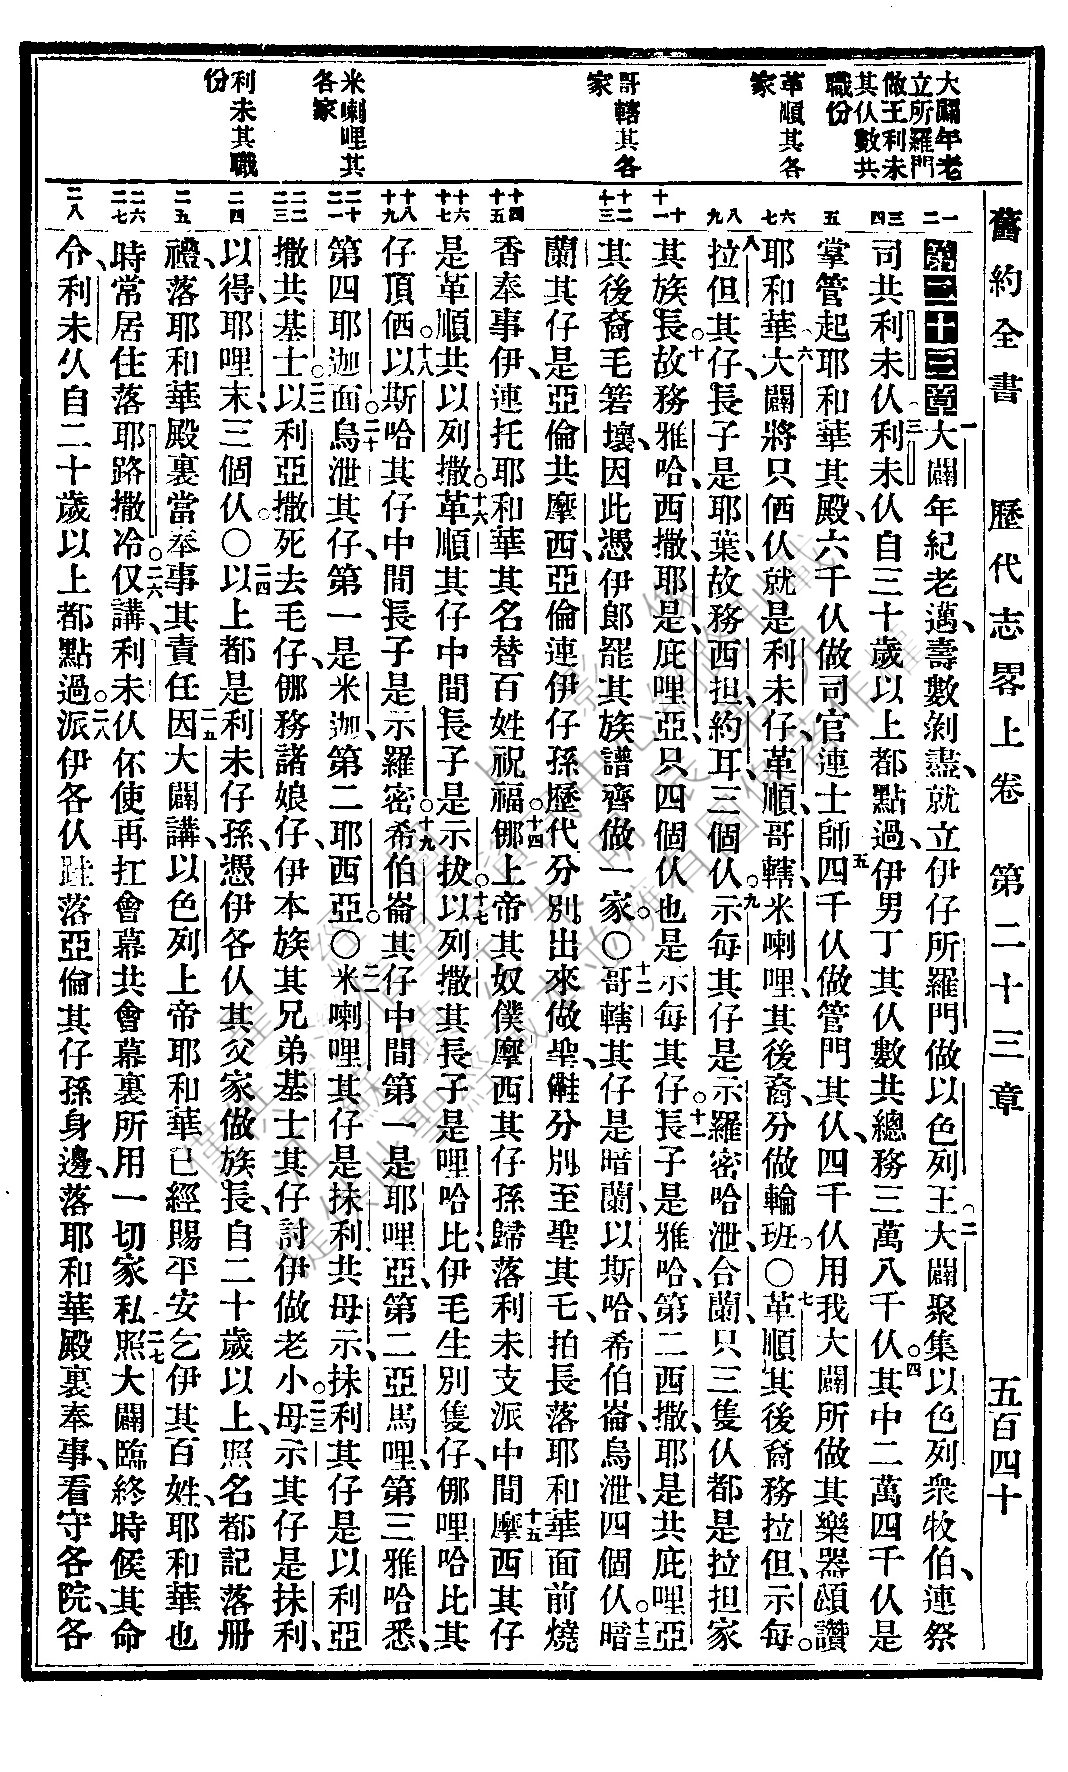 舊約全書 歷代志畧上卷 第二十三章 五百四十
大闢年老
立所羅門
做王利未
其仈數共
職份
革順其各
家
哥轄其各
家
米喇哩其
各家
利未其職
份
一 二
三 四
五
六 七
八 九
十 十一
十二 十三
十四 十五
十六 十七
十八 十九
二十 二一
二二 二三
二四
二五
二六 二七
二八
第二十三章一大闢年紀老邁、壽數剝盡、就立伊仔所羅門做以色列王。二大闢聚集以色列衆牧伯、連祭
司共利未仈。三利未仈自三十歲以上都點過、伊男丁其仈數共總務三萬八千仈。四其中二萬四千仈是
掌管起耶和華其殿、六千仈做司官連士師、五四千仈做管門其仈、四千仈用我大闢所做其樂器頌讚
耶和華。六大闢將只俩仈就是利未仔、革順、哥轄、米喇哩、其後裔、分做輪班。〇七革順其後裔務拉但、示每。
八拉但其仔、長子是耶葉、故務西担、約耳、三個仈。九示每其仔是示羅密、哈泄、合蘭、只三隻仈都是拉担家
其族長。十故務雅哈、西撒、耶是、庇哩亞、只四個仈也是示每其仔。十一長子是雅哈、第二西撒、耶是共庇哩亞
其後裔毛箬壞、因此憑伊郎罷其族譜齊做一家。〇十二哥轄其仔是暗蘭、以斯哈、希伯崙、烏泄、四個仈。十三暗
蘭其仔是亞倫共摩西、亞倫連伊仔孫歷代分別出來做聖、毑分別至聖其乇、拍長落耶和華面前燒
香奉事伊、連托耶和華其名替百姓祝福。十四㑚上帝其奴僕摩西其仔孫歸落利未支派中間。十五摩西其仔
是革順共以列撒。十六革順其仔中間長子是示拔。十七以列撒其長子是哩哈比、伊毛生別隻仔、㑚哩哈比其
仔頂俩。十八以斯哈其仔中間長子是示羅密。十九希伯崙其仔中間第一是耶哩亞、第二亞馬哩、第三雅哈悉、
第四耶迦面。二十烏泄其仔、第一是米迦、第二耶西亞。〇二一米喇哩其仔是抹利共母示、抹利其仔是以利亞
撒共基士。二二以利亞撒死去毛仔、㑚務諸娘仔、伊本族其兄弟基士其仔討伊做老小。二三母示其仔是抹利、
以得、耶哩末、三個仈。〇二四以上都是利未仔孫、憑伊各仈其父家做族長、自二十歲以上、照名都記落册
禮、落耶和華殿裏當奉事其責任。二五因大闢講、以色列上帝耶和華已經賜平安乞伊其百姓、耶和華也
時常居住落耶路撒冷。二六仅講、利未仈伓使再扛會幕共會幕裏所用一切家私。二七照大闢臨終時候其命
令、利未仈自二十歲以上都點過。二八派伊各仈跬落亞倫其仔孫身邊、落耶和華殿裏奉事、看守各院、各